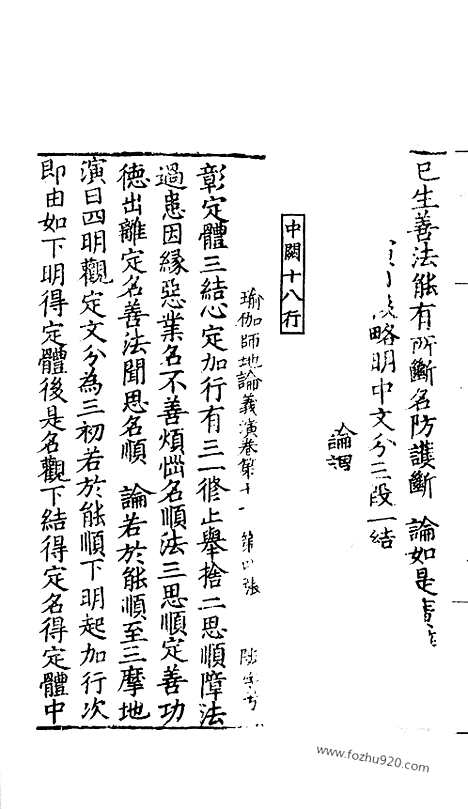 已生善法能有所斷名防護斷　論如是
略明中文分三段一結
論謂
中闕十八行
瑜伽師地論義演卷第十一　第四張
彰定體三結心定加行有三一修止舉捨二思順障法
過患因緣惡業名不善煩惱名順法三思順定善功
德出離定名善法聞思名順　論若於能順至三摩地
演曰四明觀定文分為三初若於能順下明起加行次
即由如下明得定體後是名觀下結得定名得定體中
www.fozhu920.com